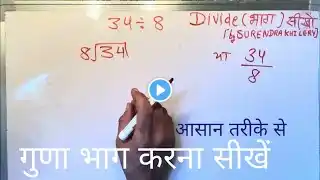 34 ÷ 8
Divide (भाग) सीखें
[by SURENDRA KHILERY]
8√34
या 34
8
आसान तरीके से
गुणा भाग करना सीखें